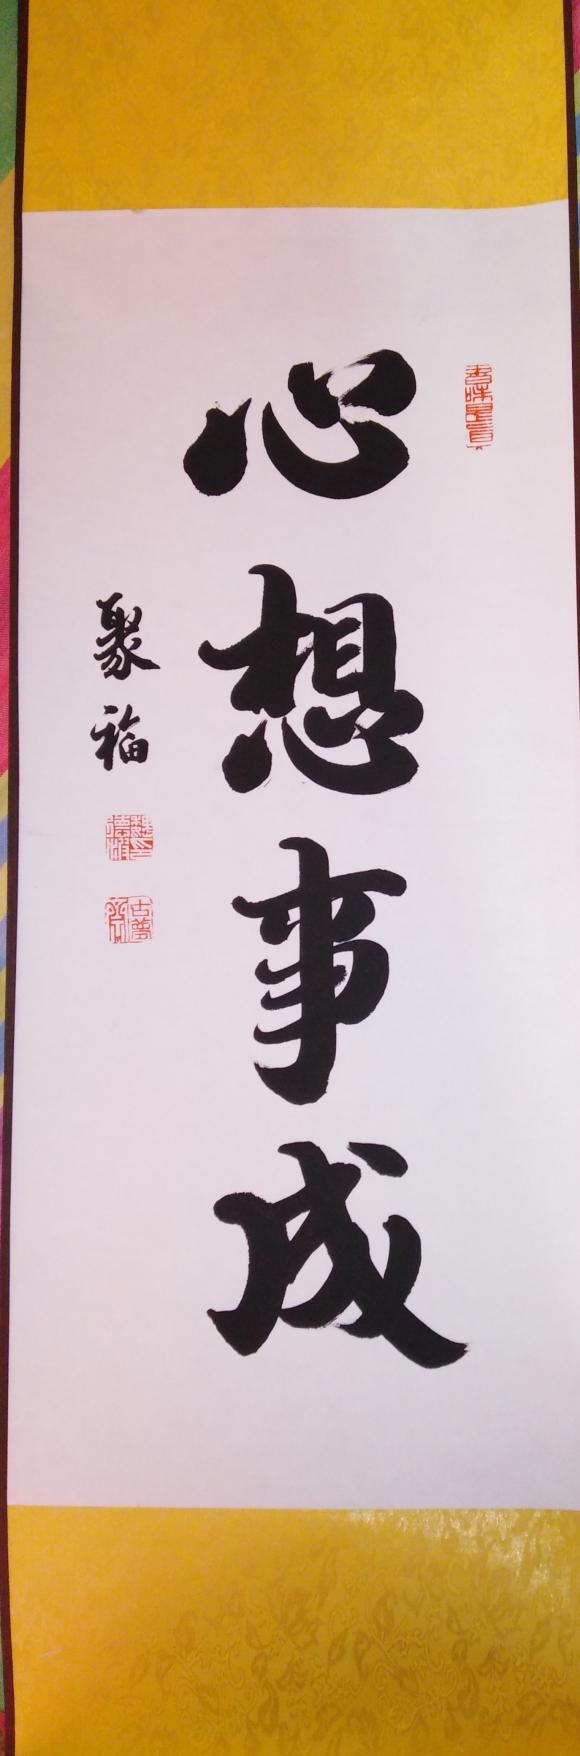 心想事成
聚福